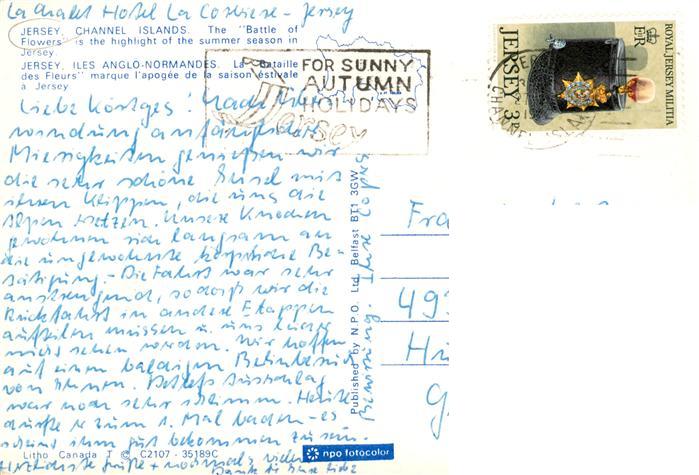 La Chalet Hotel La Corbière - Jersey
JERSEY, CHANNEL ISLANDS. The "Battle of
Flowers" is the highlight of the summer season in
Jersey.
JERSEY, ILES ANGLO-NORMANDES. La "Bataille
des Fleurs" marque l'apogée de la saison estivale
a Jersey
FOR SUNNY
AUTUMN
HOLIDAYS
Jersey
ROYAL JERSEY MILITIA
JERSEY 3P
CHANNEL ISLANDS
Liebe Köstges! Nach Über-
windung anfänglicher
Miesigkeiten genießen wir
die sehr schöne Insel mit
ihren Klippen, die uns die
Alpen ersetzen. Unsere Knochen
gewöhnen sich langsam an
die ungewohnte körperliche Be-
tätigung. - Die Fahrt war sehr
anstrengend, sodaß wir die
Rückfahrt in andere Etappen
aufteilen müssen u. uns leider
nicht sehen werden. Wir hoffen
auf einen baldigen Besuch
von Ihnen. Detlefs Ausschlag
war noch sehr schlimm. Heute
durfte er zum 1. Mal baden - es
scheint ihm gut bekommen zu sein.
Herzlichste Grüße + nochmals vielen
Dank für Ihre liebe
Bewirtung. Ihre
Published by N.P.O. Ltd., Belfast BT1 3GW
Fra
49
Hi
G
Litho Canada T © C2107 - 35189C
npo fotocolor